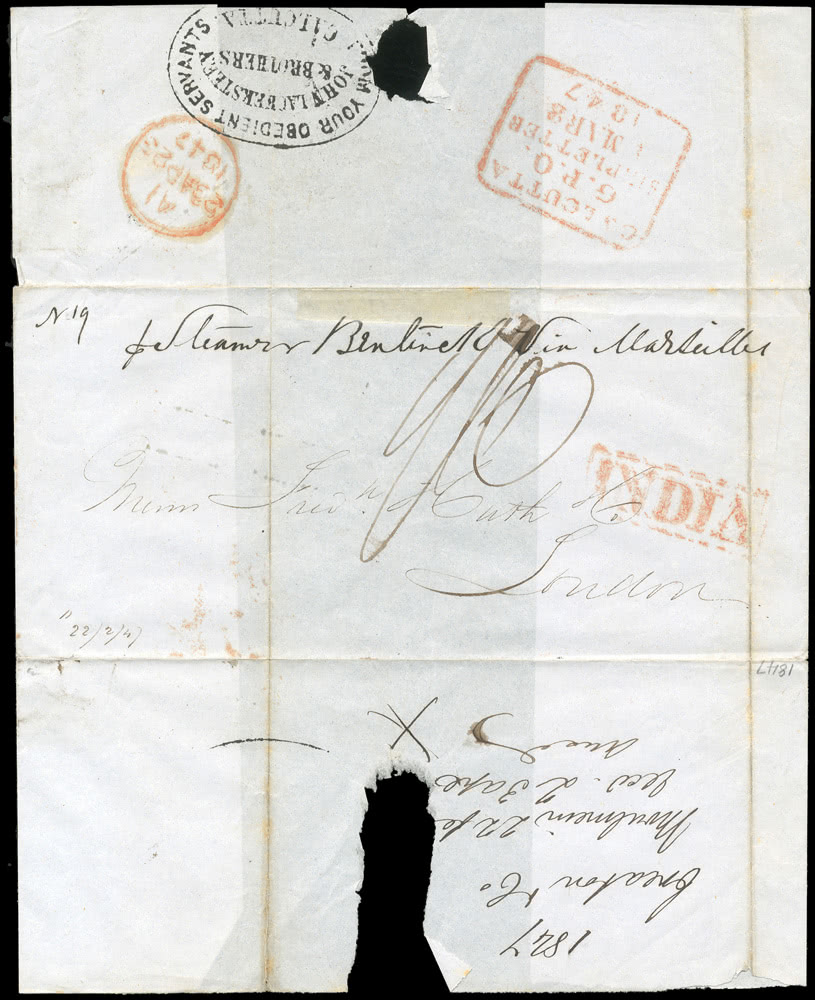 FROM YOUR OBEDIENT SERVANTS
JOHN LACKERSTEEN
& BROTHERS
CALCUTTA
CALCUTTA
G.P.O.
SHIP LETTER
MAR 8
1847
A1
23 AP 23
1847
N. 19
p Steamer Bentinck Via Marseilles
Messrs Fredk. Huth & Co
London
INDIA
22/2/47
1847
1847
& Co
Moulmein 22 fe